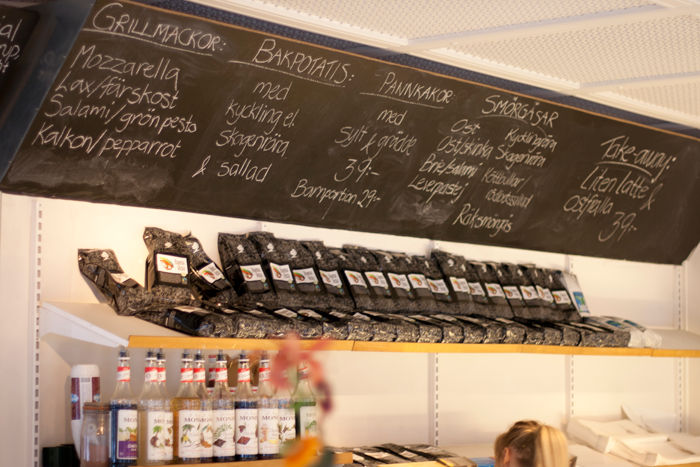 GRILLMACKOR:
Mozzarella
Lax/färskost
Salami/grön pesto
Kalkon/pepparrot
BAKPOTATIS:
med
kyckling el.
Skagenröra
& sallad
PANNKAKOR
med
Sylt & grädde
39:-
Barnportion 29:-
SMÖRGÅSAR
Ost
Ost/skinka
Brie/salami
Leverpastej
Kycklingröra
Skagenröra
Köttbullar/
rödbetssallad
Räksmörgås
Take-away:
Liten latte &
ostfralla
39:-